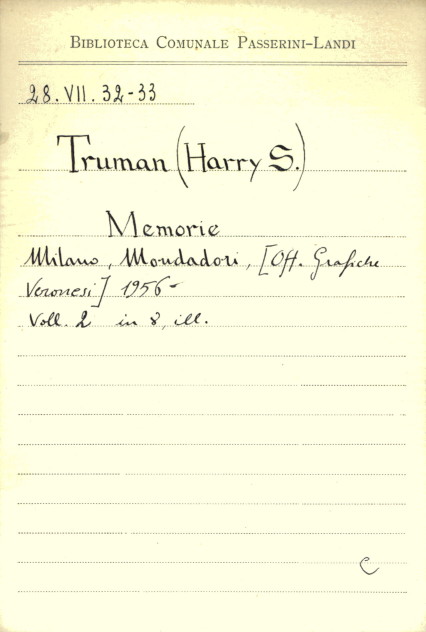 BIBLIOTECA COMUNALE PASSERINI-LANDI
28. VII. 32-33
Truman (Harry S.)
Memorie
Milano, Mondadori, [Off. Grafiche
Veronesi] 1956-
Voll. 2 in 8, ill.
C